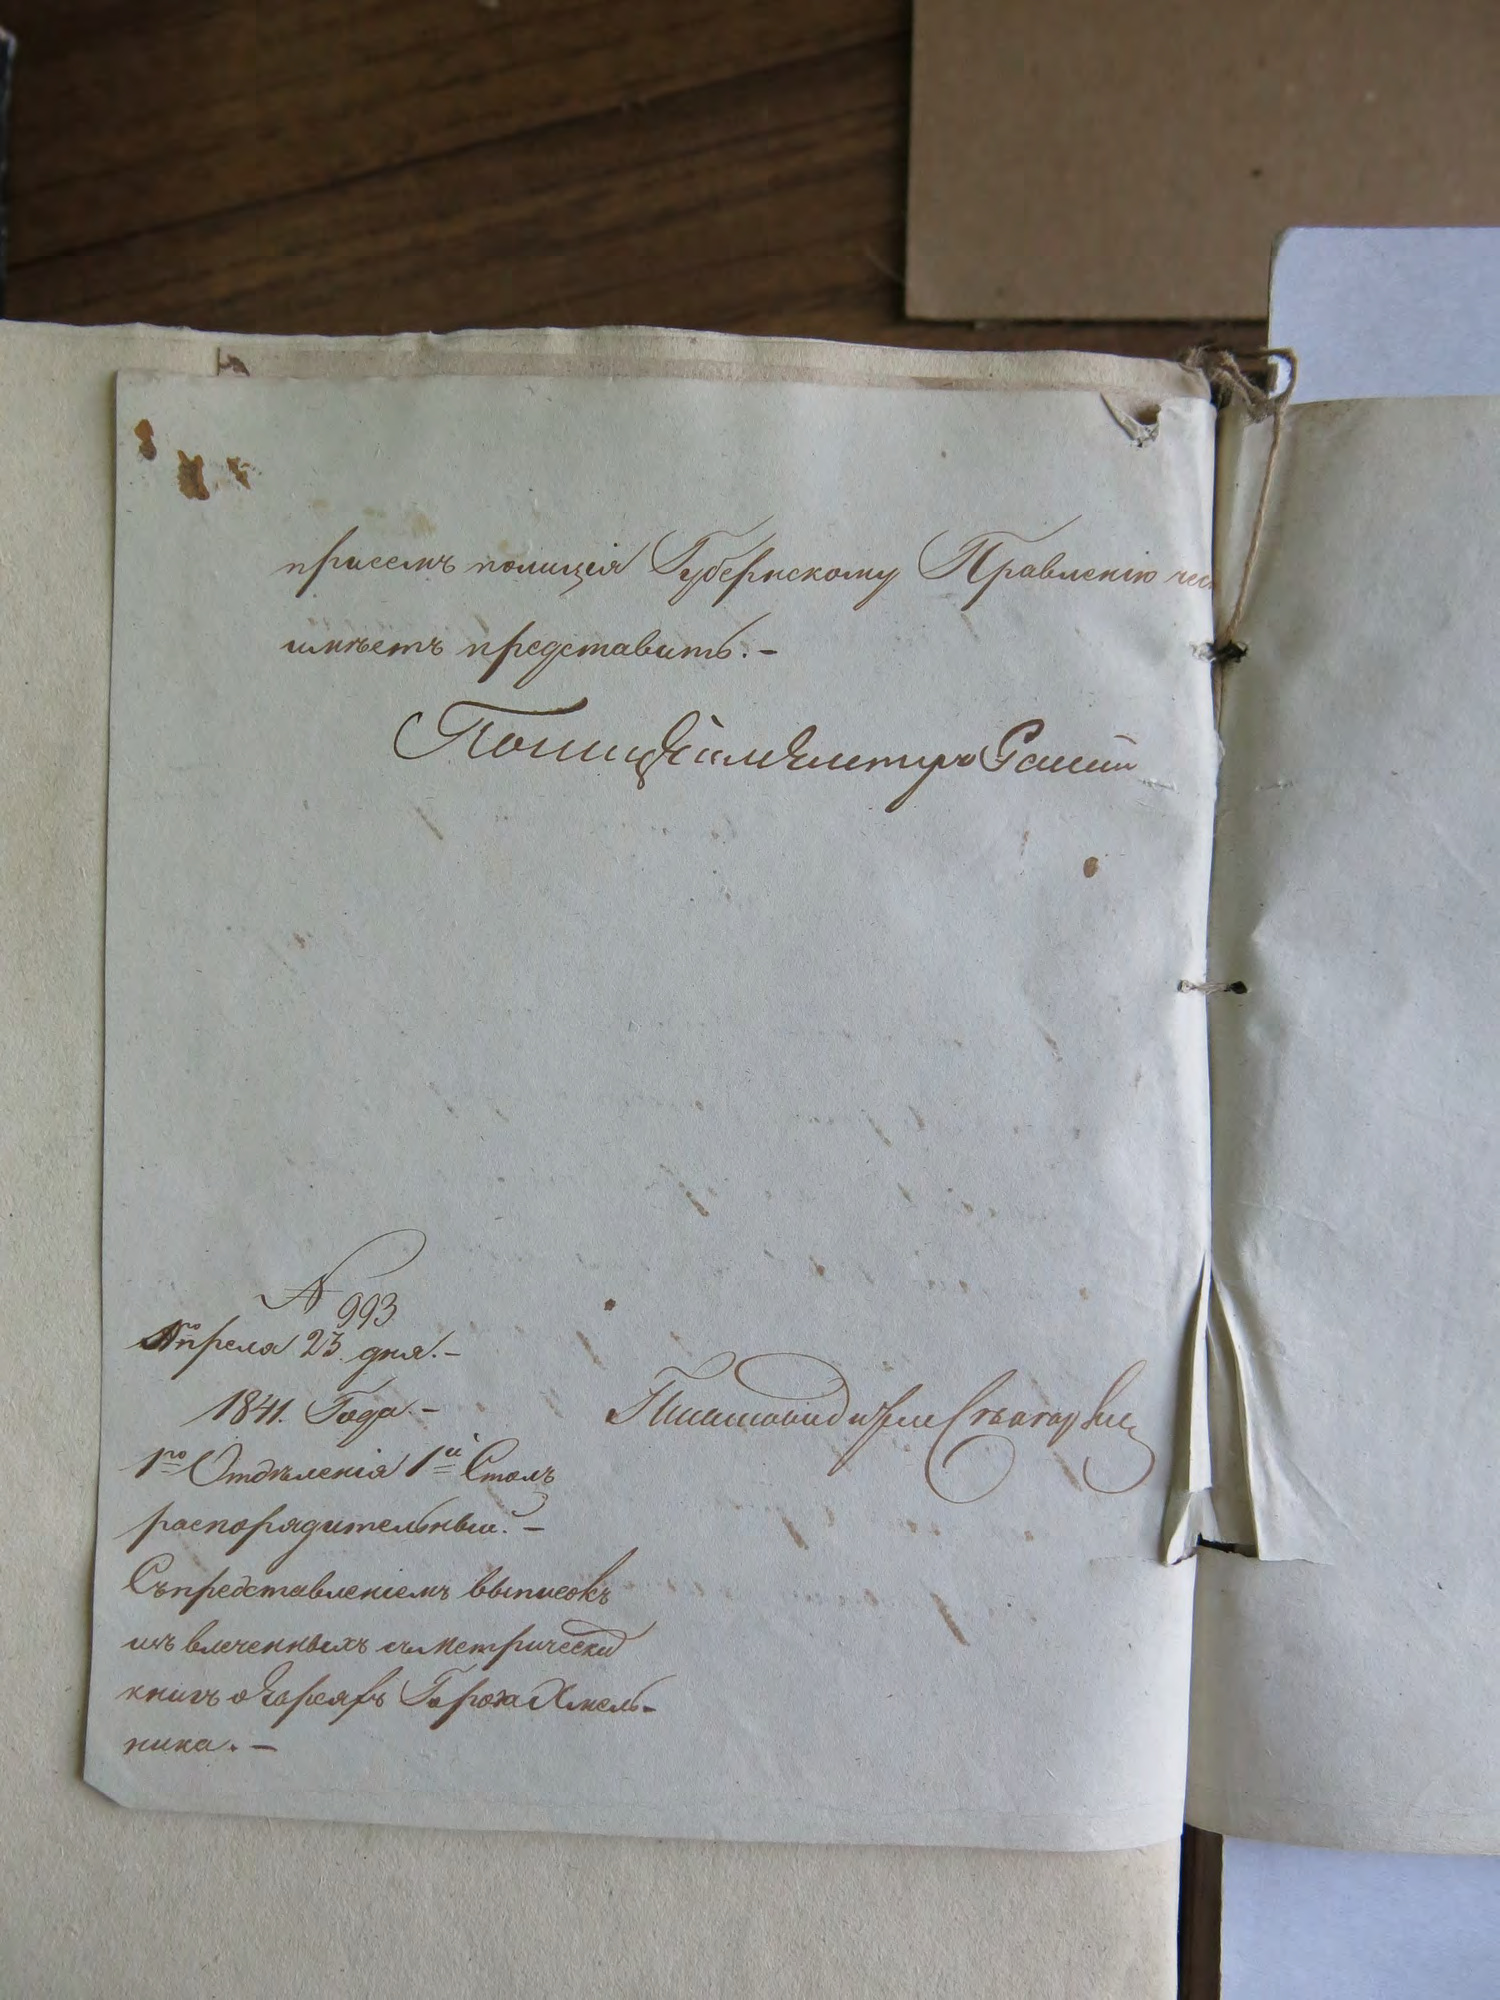 при семъ полиція Губернскому Правленію
имѣетъ представить. –
Полиціймейстеръ
№ 993
Апреля 23. дня. –
1841. Года. –
1го Отдѣленія 1й Столъ
распорядительный. –
Съ представленіемъ выписокъ
изъвлеченныхъ съ метрически
книгъ о Евреяхъ Города Хмель-
ника. –